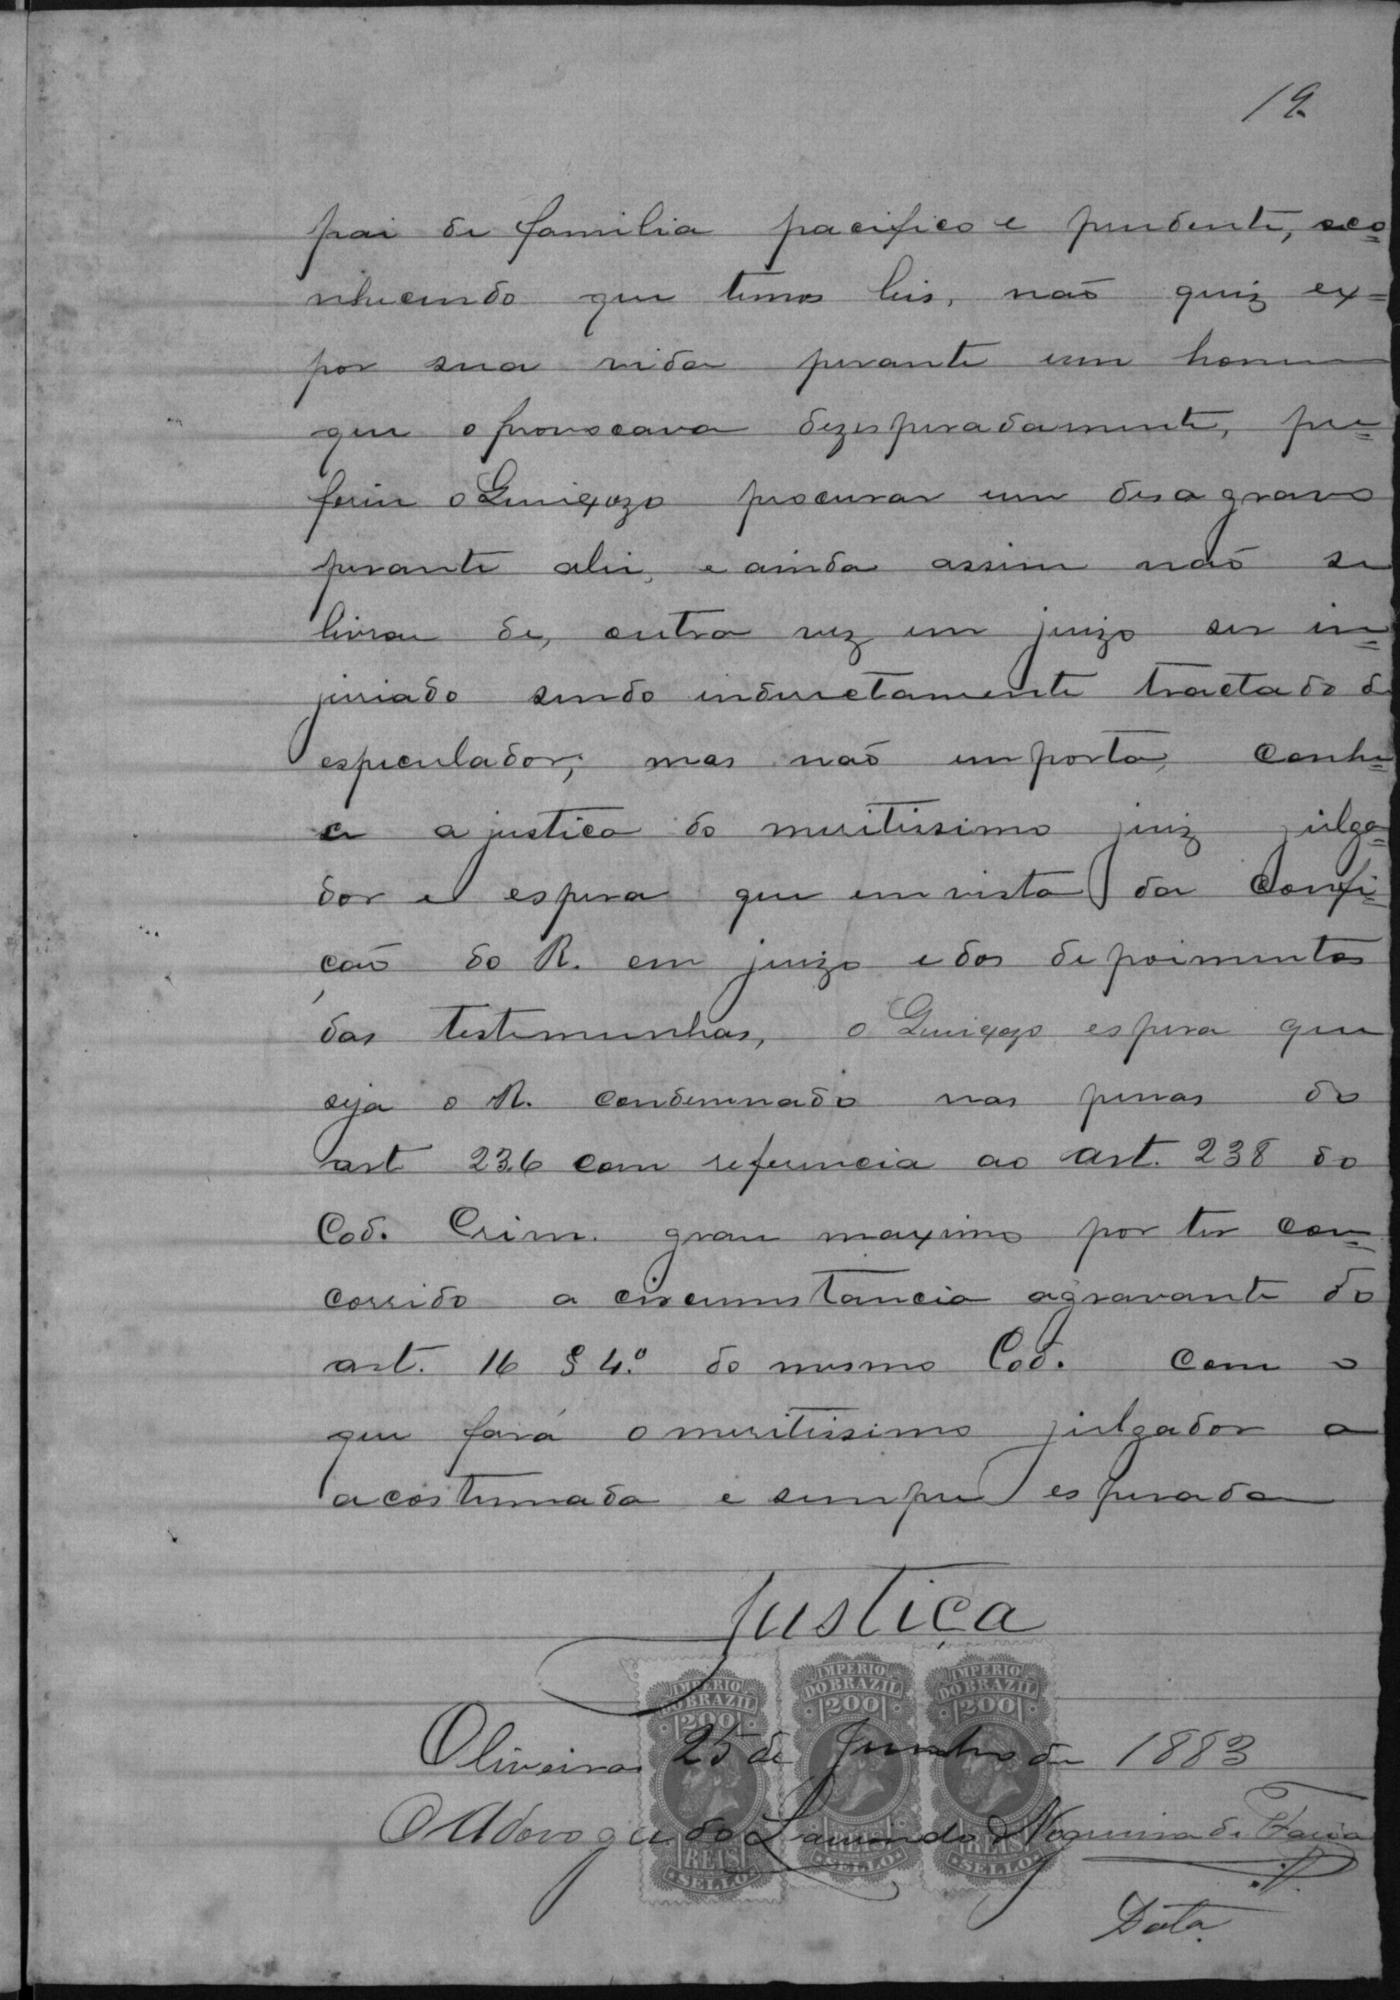 19.
pai de familia pacifico e prudente, reco=
nhecendo que temos leis, não quiz ex=
por sua vida perante um homem
que o provocava dezesperadamente, pre=
feriu o Queixozo procurar um desagravo
perante alei, e ainda assim não se
livrou de, outra vez em juizo ser in=
juriado sendo inderectamente tractado de
especulador; mas não importa, conhe=
ce a justica do meritissimo juiz julga=
dor e espera que em vista da Confi=
ção do R. em juizo e dos depoimentos
das testemunhas, o Queixozo espera que
seja o R. condemnado nas penas do
art 236 com referencia ao art. 238 do
Cod. Crim. grau maximo por ter con=
corrido a circumstancia agravante do
art. 16 § 4.º do mesmo Cod. Com o
que fará o meritissimo julgador a
acostumada e sempre esperada
Justiça
IMPERIO DO BRAZIL 200 REIS SELLO
IMPERIO DO BRAZIL 200 REIS SELLO
IMPERIO DO BRAZIL 200 REIS SELLO
Oliveira 25 de Junho de 1883
O Advogado Laurindo Nogueira de Faria
Data